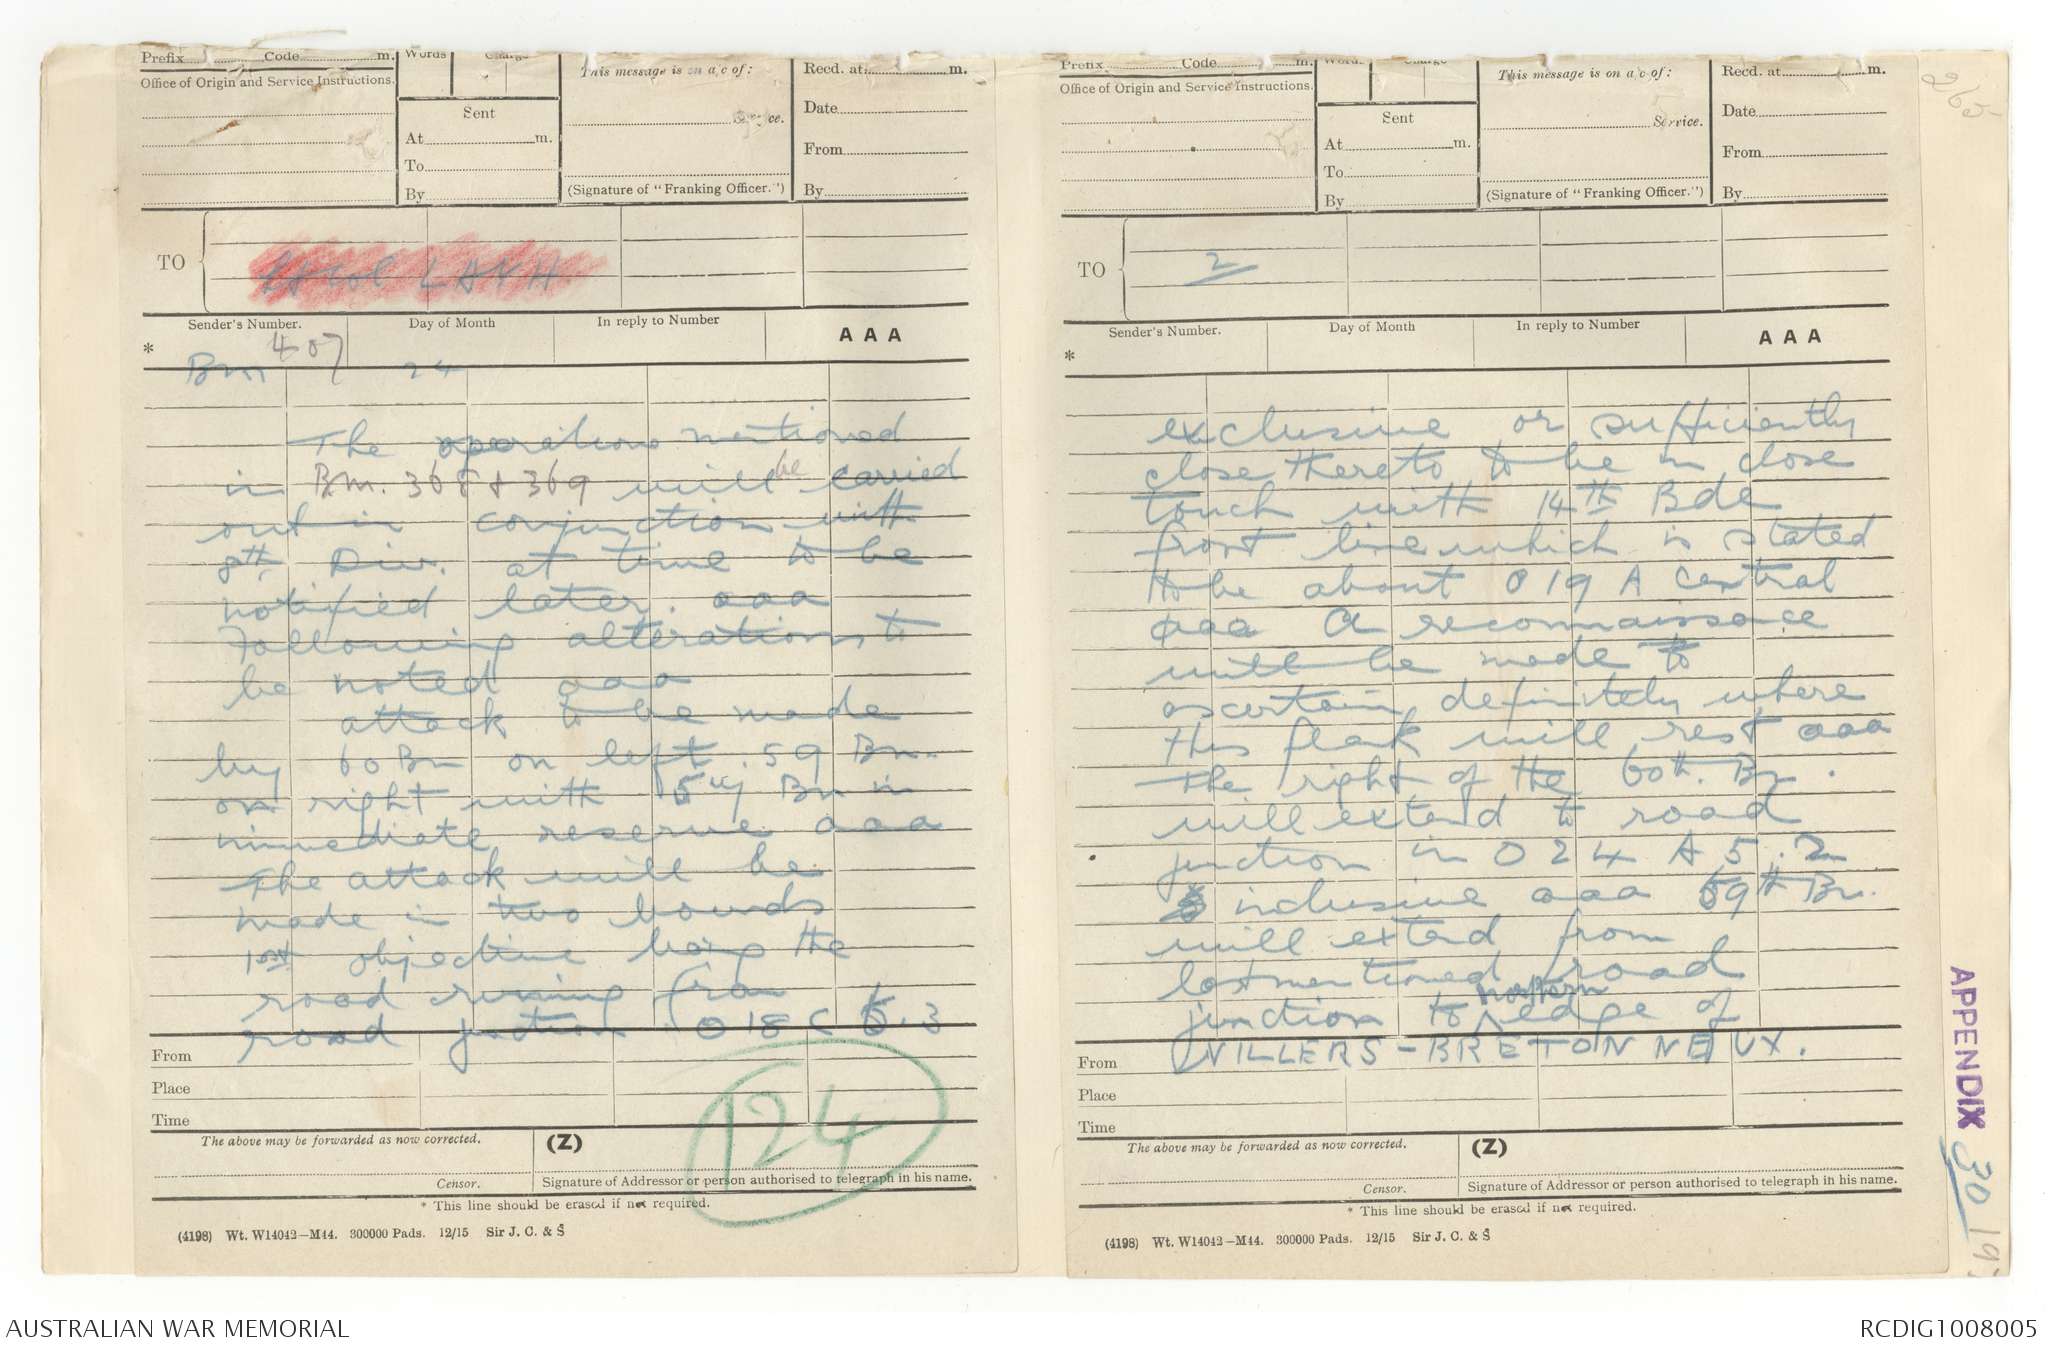 Prefix Code m.
Words Charge
This message is on a/c of:
Recd. at m.
Office of Origin and Service Instructions.
Sent
At m.
To
By
Service.
(Signature of "Franking Officer.")
Date
From
By
TO
LAVH
Sender's Number.
Day of Month
In reply to Number
AAA
*
Bm 407
24
The operations mentioned
in Bm. 368 & 369 will be carried
out in conjunction with
8th Div. at time to be
notified later. aaa
Following alterations to
be noted aaa
attack to be made
by 60 Bn on left. 59 Bn.
on right with 57 Bn in
immediate reserve aaa
The attack will be
made in two bounds
1st objective being the
road running from
road junction O 18 C 5.3
From
Place
Time
The above may be forwarded as now corrected.
(Z)
124
Censor.
Signature of Addressor or person authorised to telegraph in his name.
* This line should be erased if not required.
(4198) Wt. W14042-M44. 300000 Pads. 12/15 Sir J. C. & S
Prefix Code m.
Words Charge
This message is on a/c of:
Recd. at m.
Office of Origin and Service Instructions.
Sent
At m.
To
By
Service.
(Signature of "Franking Officer.")
Date
From
By
TO
2
Sender's Number.
Day of Month
In reply to Number
AAA
*
exclusive or sufficiently
close thereto to be in close
touch with 14th Bde
front line which is stated
to be about O 19 A central
aaa A reconnaissance
will be made to
ascertain definitely where
this flank will rest aaa
The right of the 60th. Bn.
will extend to road
junction in O 24 A 5.2
inclusive aaa 59th Bn.
will extend from
lastmentioned road
junction to northern edge of
VILLERS-BRETONNEUX.
From
Place
Time
The above may be forwarded as now corrected.
(Z)
Censor.
Signature of Addressor or person authorised to telegraph in his name.
* This line should be erased if not required.
(4198) Wt. W14042-M44. 300000 Pads. 12/15 Sir J. C. & S
APPENDIX 30
AUSTRALIAN WAR MEMORIAL
RCDIG1008005